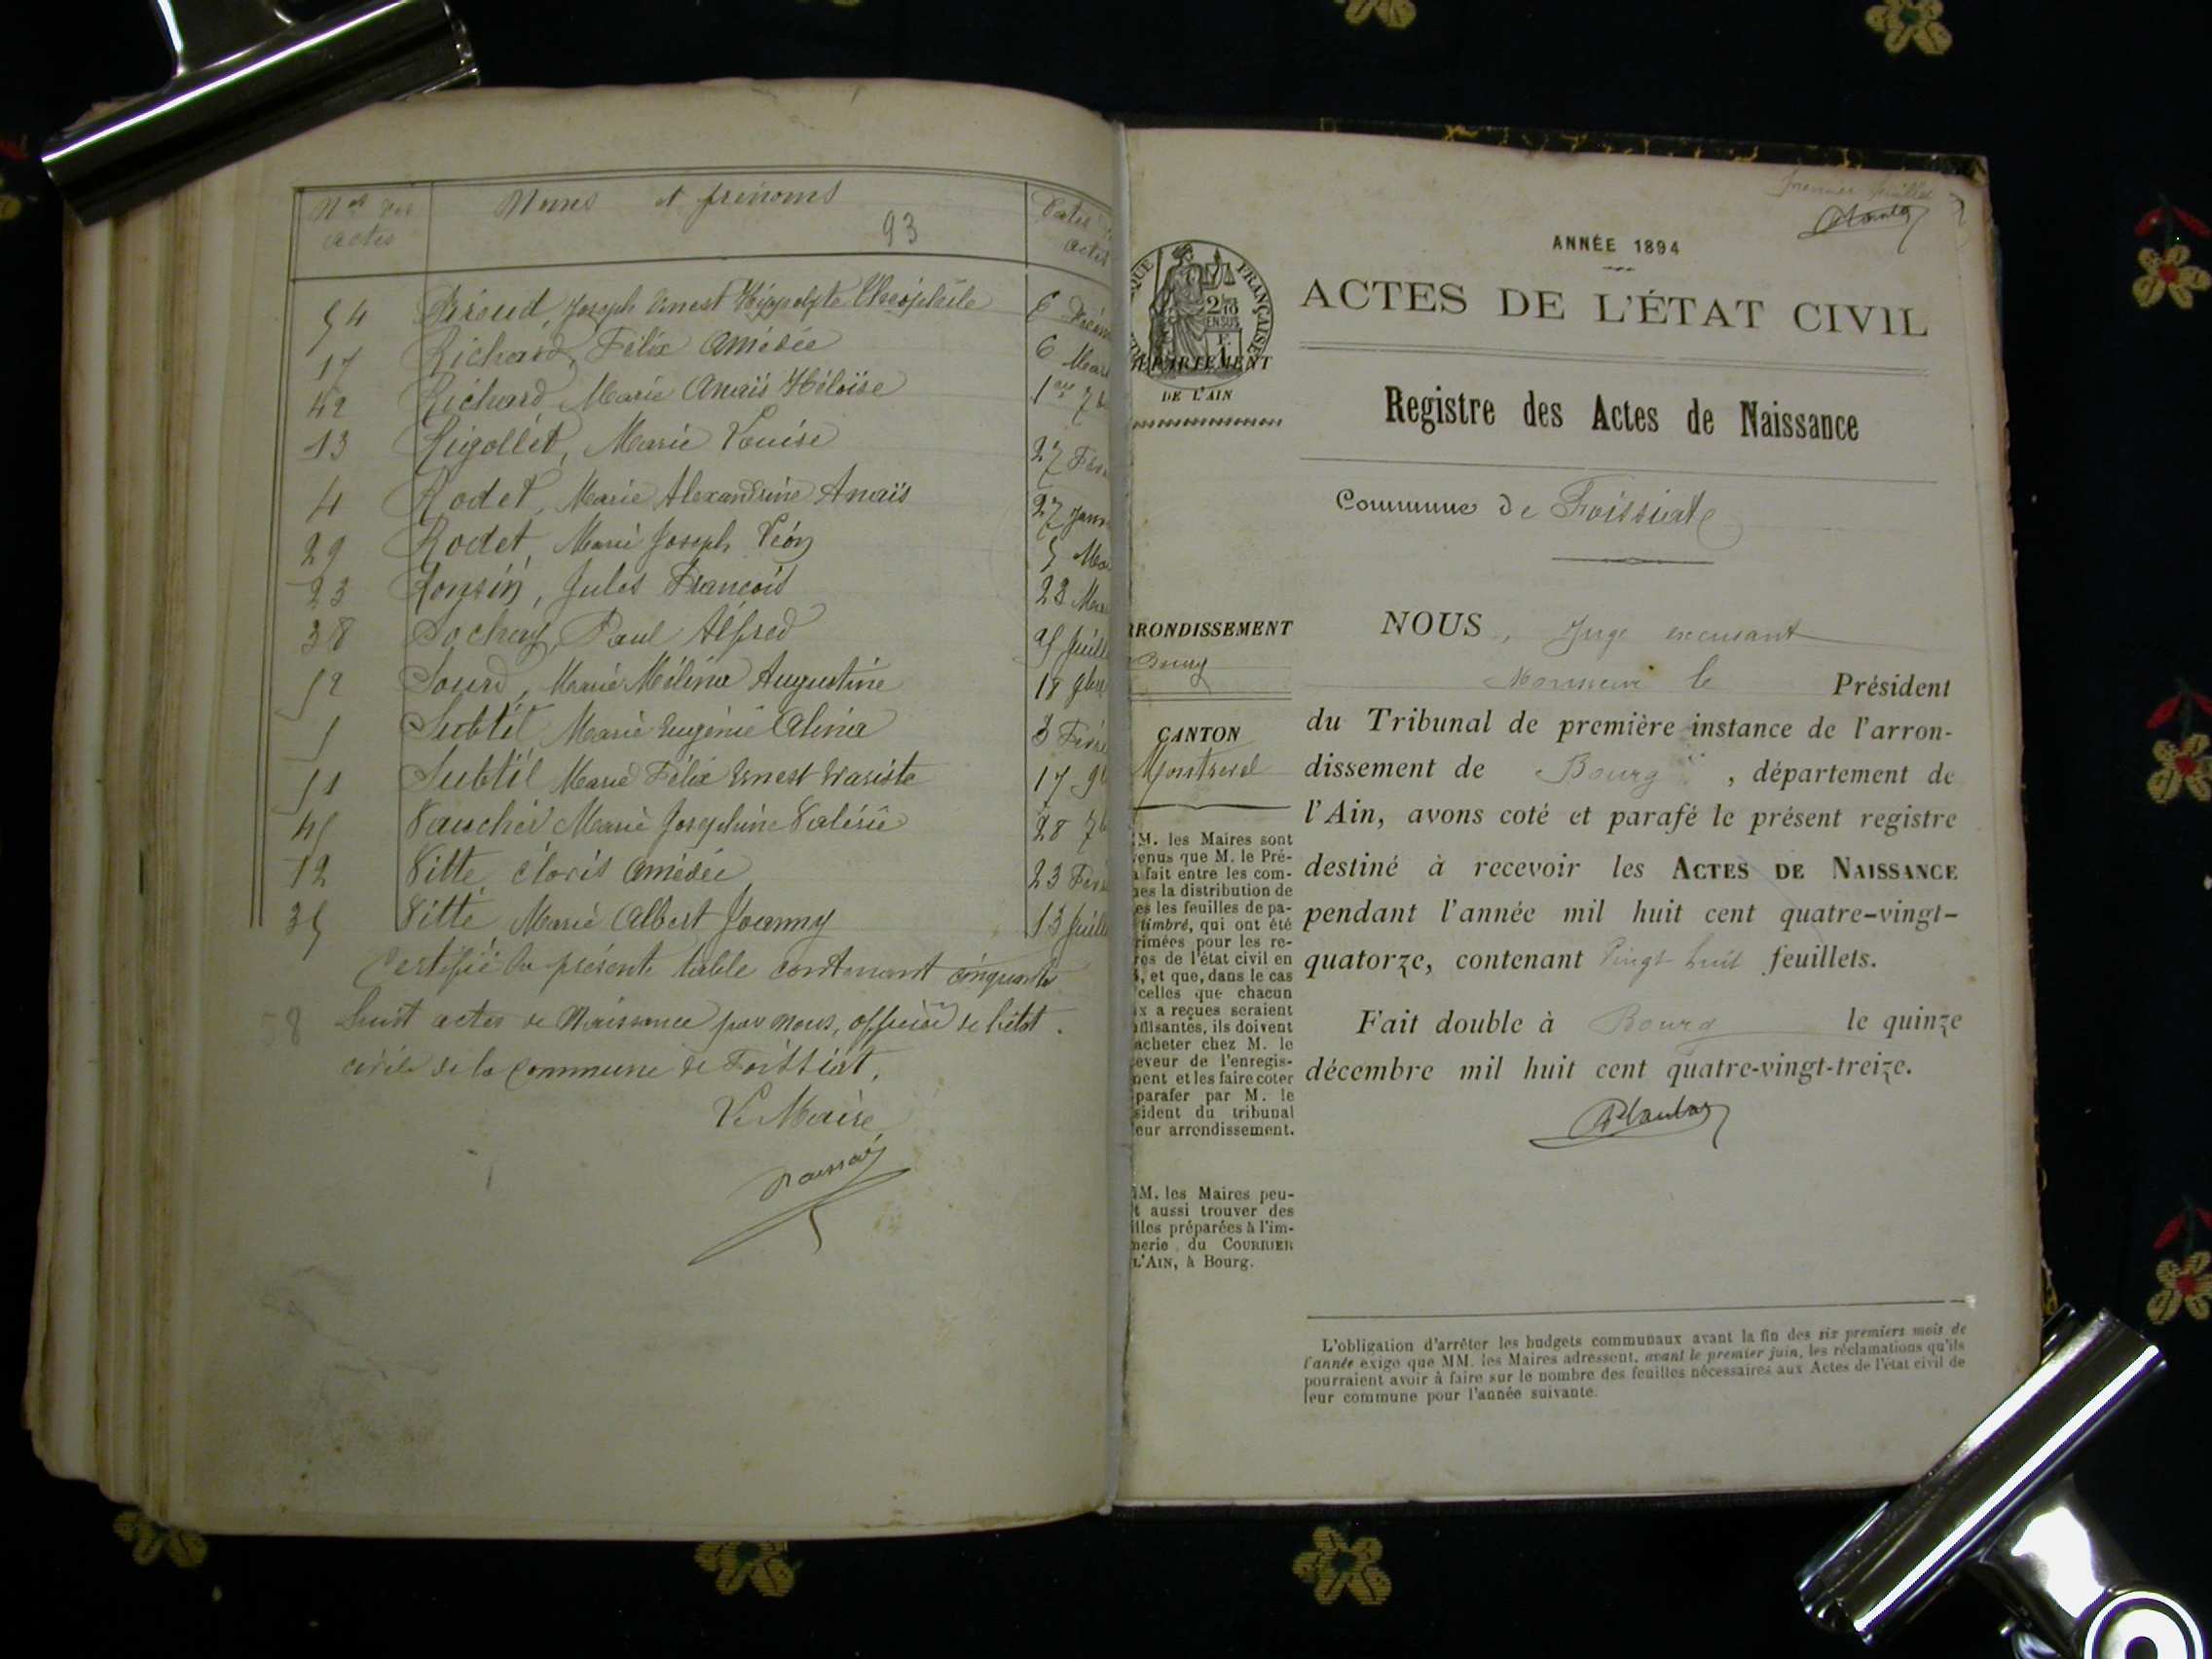 Nos des actes
Noms et prénoms
93
Dates
actes
54 Piroud, Joseph Ernest Hippolyte Théophile 6 Décem
17 Richard, Félix Amédée 6 Mars
42 Richard, Marie Anaïs Héloïse 1er 7b
13 Rigollet, Marie Louise 27 Fév
4 Rodet, Marie Alexandrine Anaïs 27 Janv
29 Rodet, Marie Joseph Léon 5 Ma
23 Ronsin, Jules François 23 Mar
38 Paul Alfred 25 Juill
52 Sourd, Marie Mélina Augustine 18 9bre
5 Subtil Marie Eugénie Alinia 3 Févr
51 Subtil Marie Félix Ernest Evariste 17 9b
45 Vaucher Marie Joséphine Valérie 28 7b
12 Vitte Cloris Amédée 23 Fév
35 Vitte Marie Albert Joanny 13 Juill
Certifié la présente table contenant cinquante
58 huit actes de Naissance par nous, officier de l'état
civil de la Commune de Foissiat.
Le Maire
premier feuillet
ANNÉE 1894
ACTES DE L'ÉTAT CIVIL
QUE FRANÇAISE
2/10
EN SUS
DÉPARTEMENT
DE L'AIN
Registre des Actes de Naissance
Commune de Foissiat
RRONDISSEMENT
Bourg
CANTON
Montrevel
M. les Maires sont
enus que M. le Pré-
a fait entre les com-
es la distribution de
es les feuilles de pa-
timbré, qui ont été
rimées pour les re-
res de l'état civil en
, et que, dans le cas
celles que chacun
x a reçues seraient
ffisantes, ils doivent
acheter chez M. le
eveur de l'enregis-
ment et les faire coter
parafer par M. le
sident du tribunal
eur arrondissement.
M. les Maires peu-
t aussi trouver des
illes préparées à l'im-
merie du COURRIER
L'AIN, à Bourg.
NOUS, Juge excusant
Monsieur le Président
du Tribunal de première instance de l'arron-
dissement de Bourg, département de
l'Ain, avons coté et parafé le présent registre
destiné à recevoir les ACTES DE NAISSANCE
pendant l'année mil huit cent quatre-vingt-
quatorze, contenant Vingt huit feuillets.
Fait double à Bourg le quinze
décembre mil huit cent quatre-vingt-treize.
L'obligation d'arrêter les budgets communaux avant la fin des six premiers mois de
l'année exige que MM. les Maires adressent, avant le premier juin, les réclamations qu'ils
pourraient avoir à faire sur le nombre des feuilles nécessaires aux Actes de l'état civil de
leur commune pour l'année suivante.